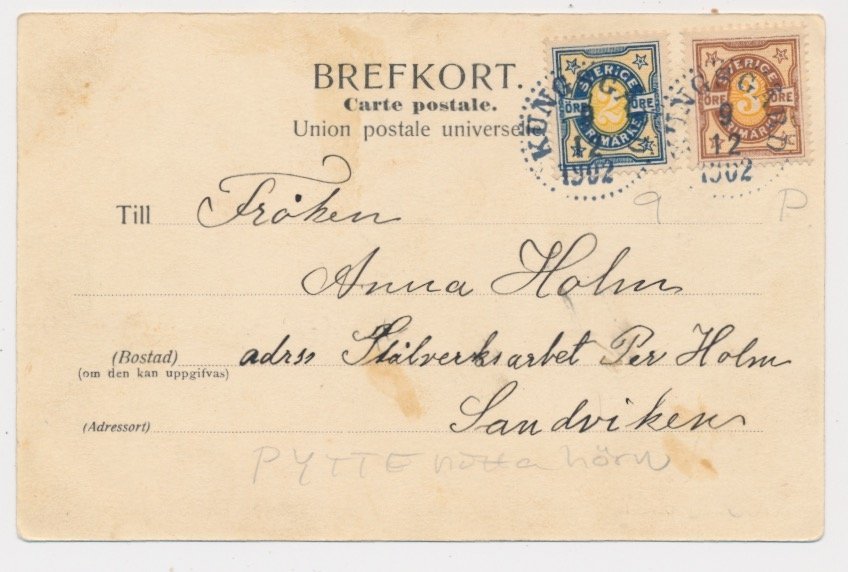 BREFKORT.
Carte postale.
Union postale universelle
SVERIGE
ÖRE 2 ÖRE
FRIMÄRKE
SVERIGE
ÖRE 3 ÖRE
FRIMÄRKE
KUNGSGÅRD
9
12
1902
KUNGSGÅRD
9
12
1902
9 P
Till Fröken
Anna Holm
(Bostad) adrss Stålverksarbet Per Holm
(om den kan uppgifvas)
(Adressort) Sandviken
PYTTE nötta hörn